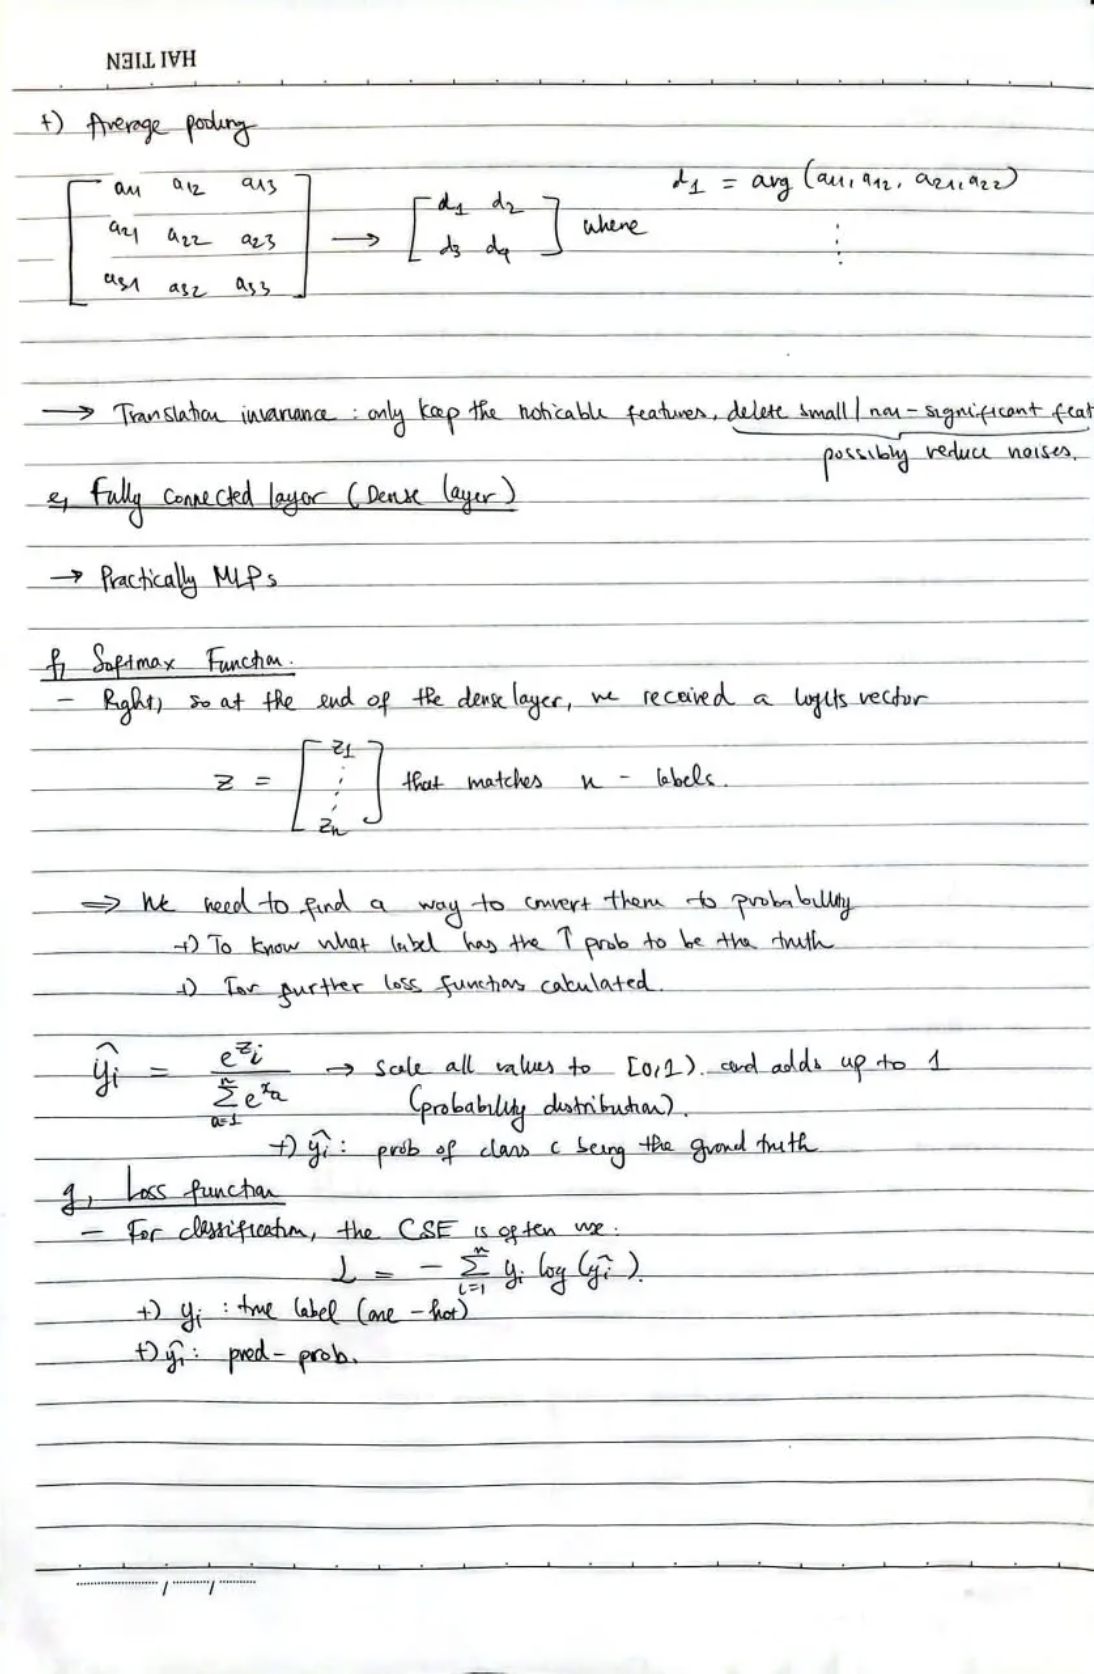 HAI TIEN
+) Average pooling
[a11 a12 a13
a21 a22 a23
a31 a32 a33] → [d1 d2
d3 d4] where d1 = avg (a11, a12, a21, a22)
⋮
→ Translation invariance : only keep the noticable features, delete small / non-significant feat
possibly reduce noises.
e, Fully Connected layer (Dense layer)
→ Practically MLPs
f, Softmax Function.
- Right, so at the end of the dense layer, we received a logits vector
z = [z1 ⋮ zn] that matches n - labels.
⇒ We need to find a way to convert them to probability
+) To know what label has the ↑ prob to be the truth
+) For further loss functions calculated.
ŷi = e^zi / Σ(a=1 to n) e^za → scale all values to [0,1). and adds up to 1
(probability distribution).
+) ŷi : prob of class c being the ground truth
g, Loss function
- For classification, the CSE is often use :
L = - Σ(i=1 to n) yi log (ŷi).
+) yi : true label (one-hot)
+) ŷi : pred-prob.